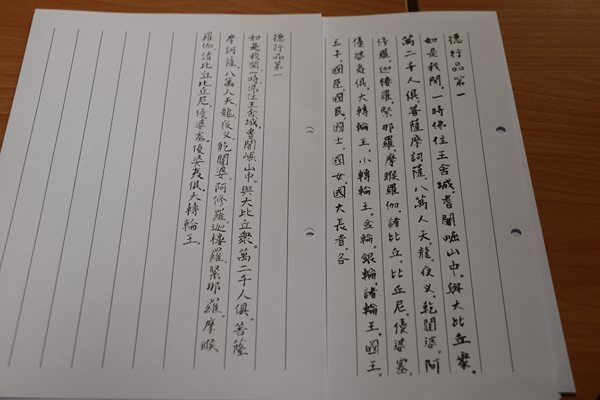 德行品第一
如是我聞。一時佛住王舍城。耆闍崛山中。與大比丘衆。
萬二千人俱。菩薩摩訶薩。八萬人。天。龍。夜叉。乾闥婆。阿
修羅。迦樓羅。緊那羅。摩睺羅伽。諸比丘。比丘尼。優婆塞。
優婆夷俱。大轉輪王。小轉輪王。金輪。銀輪。諸輪王。國王。
王子。國臣國民。國士。國女國大長者各
德行品第一
如是我聞。一時。佛住王舍城。耆闍崛山中。與大比丘衆。萬二千人俱。菩薩
摩訶薩。八萬人天龍夜叉。乾闥婆。阿修羅。迦樓羅。緊那羅。摩睺
羅伽。諸比丘比丘尼。優婆塞。優婆夷俱。大轉輪王。